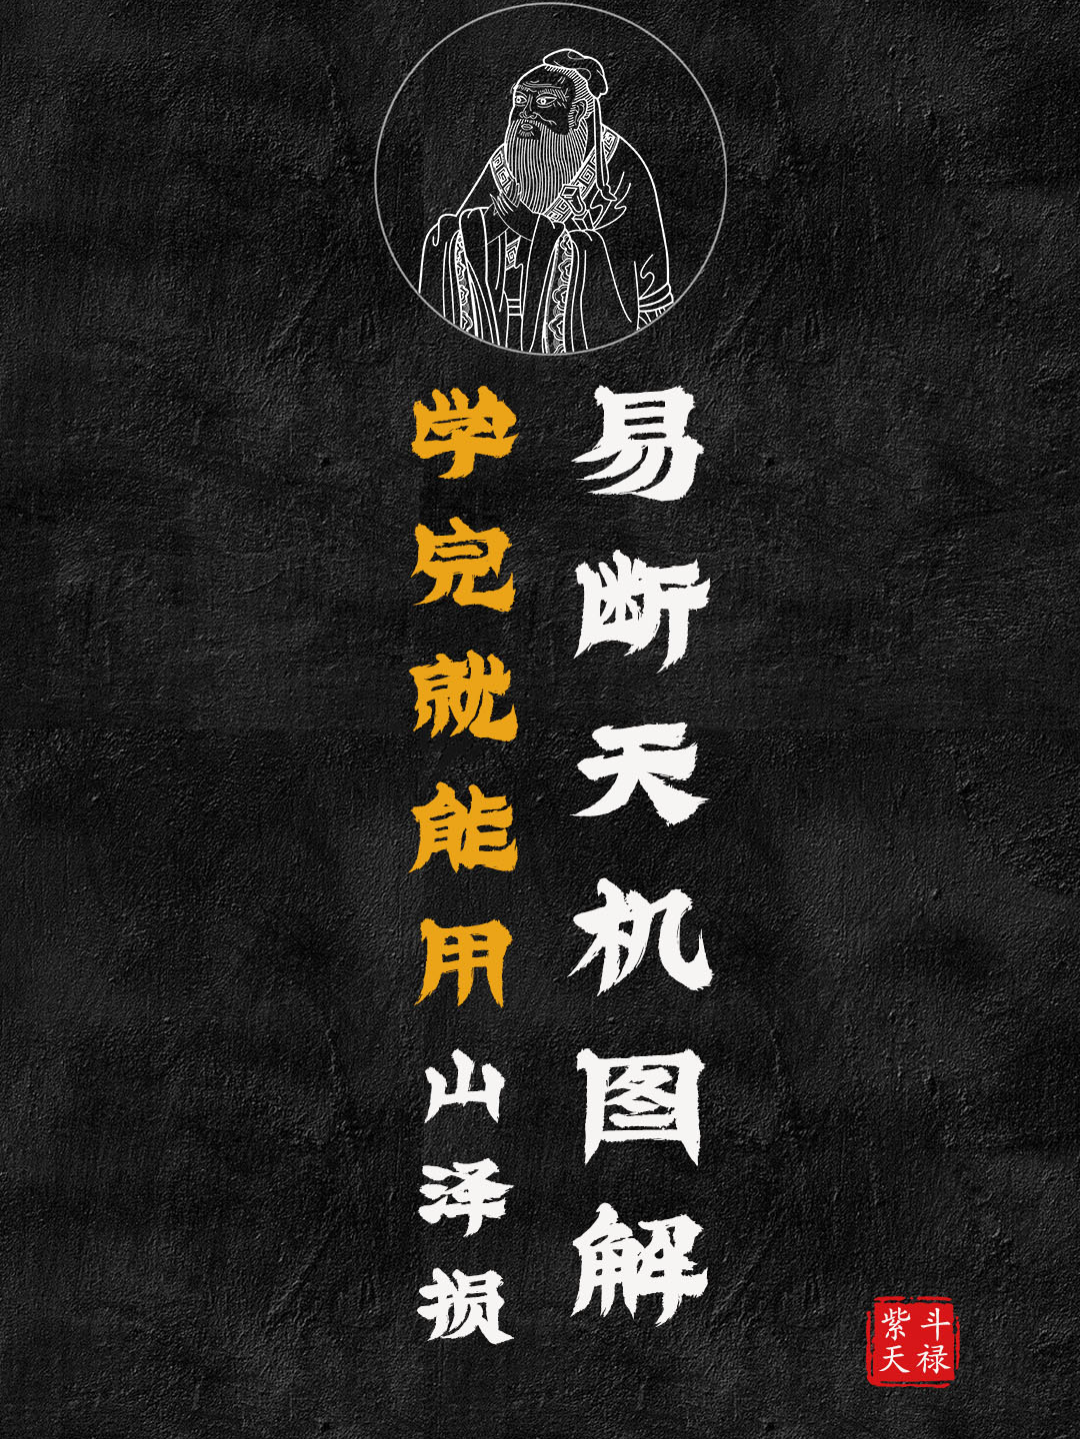 易断天机图解
学完就能用山泽损
紫斗
天禄